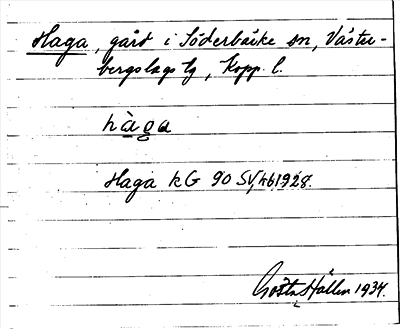 Haga, gård i Söderbärke sn, Väster-
bergslags tg, Kopp. l.
hàga
Haga kG 90 SV
1928.
Gösta Hallen 1934.